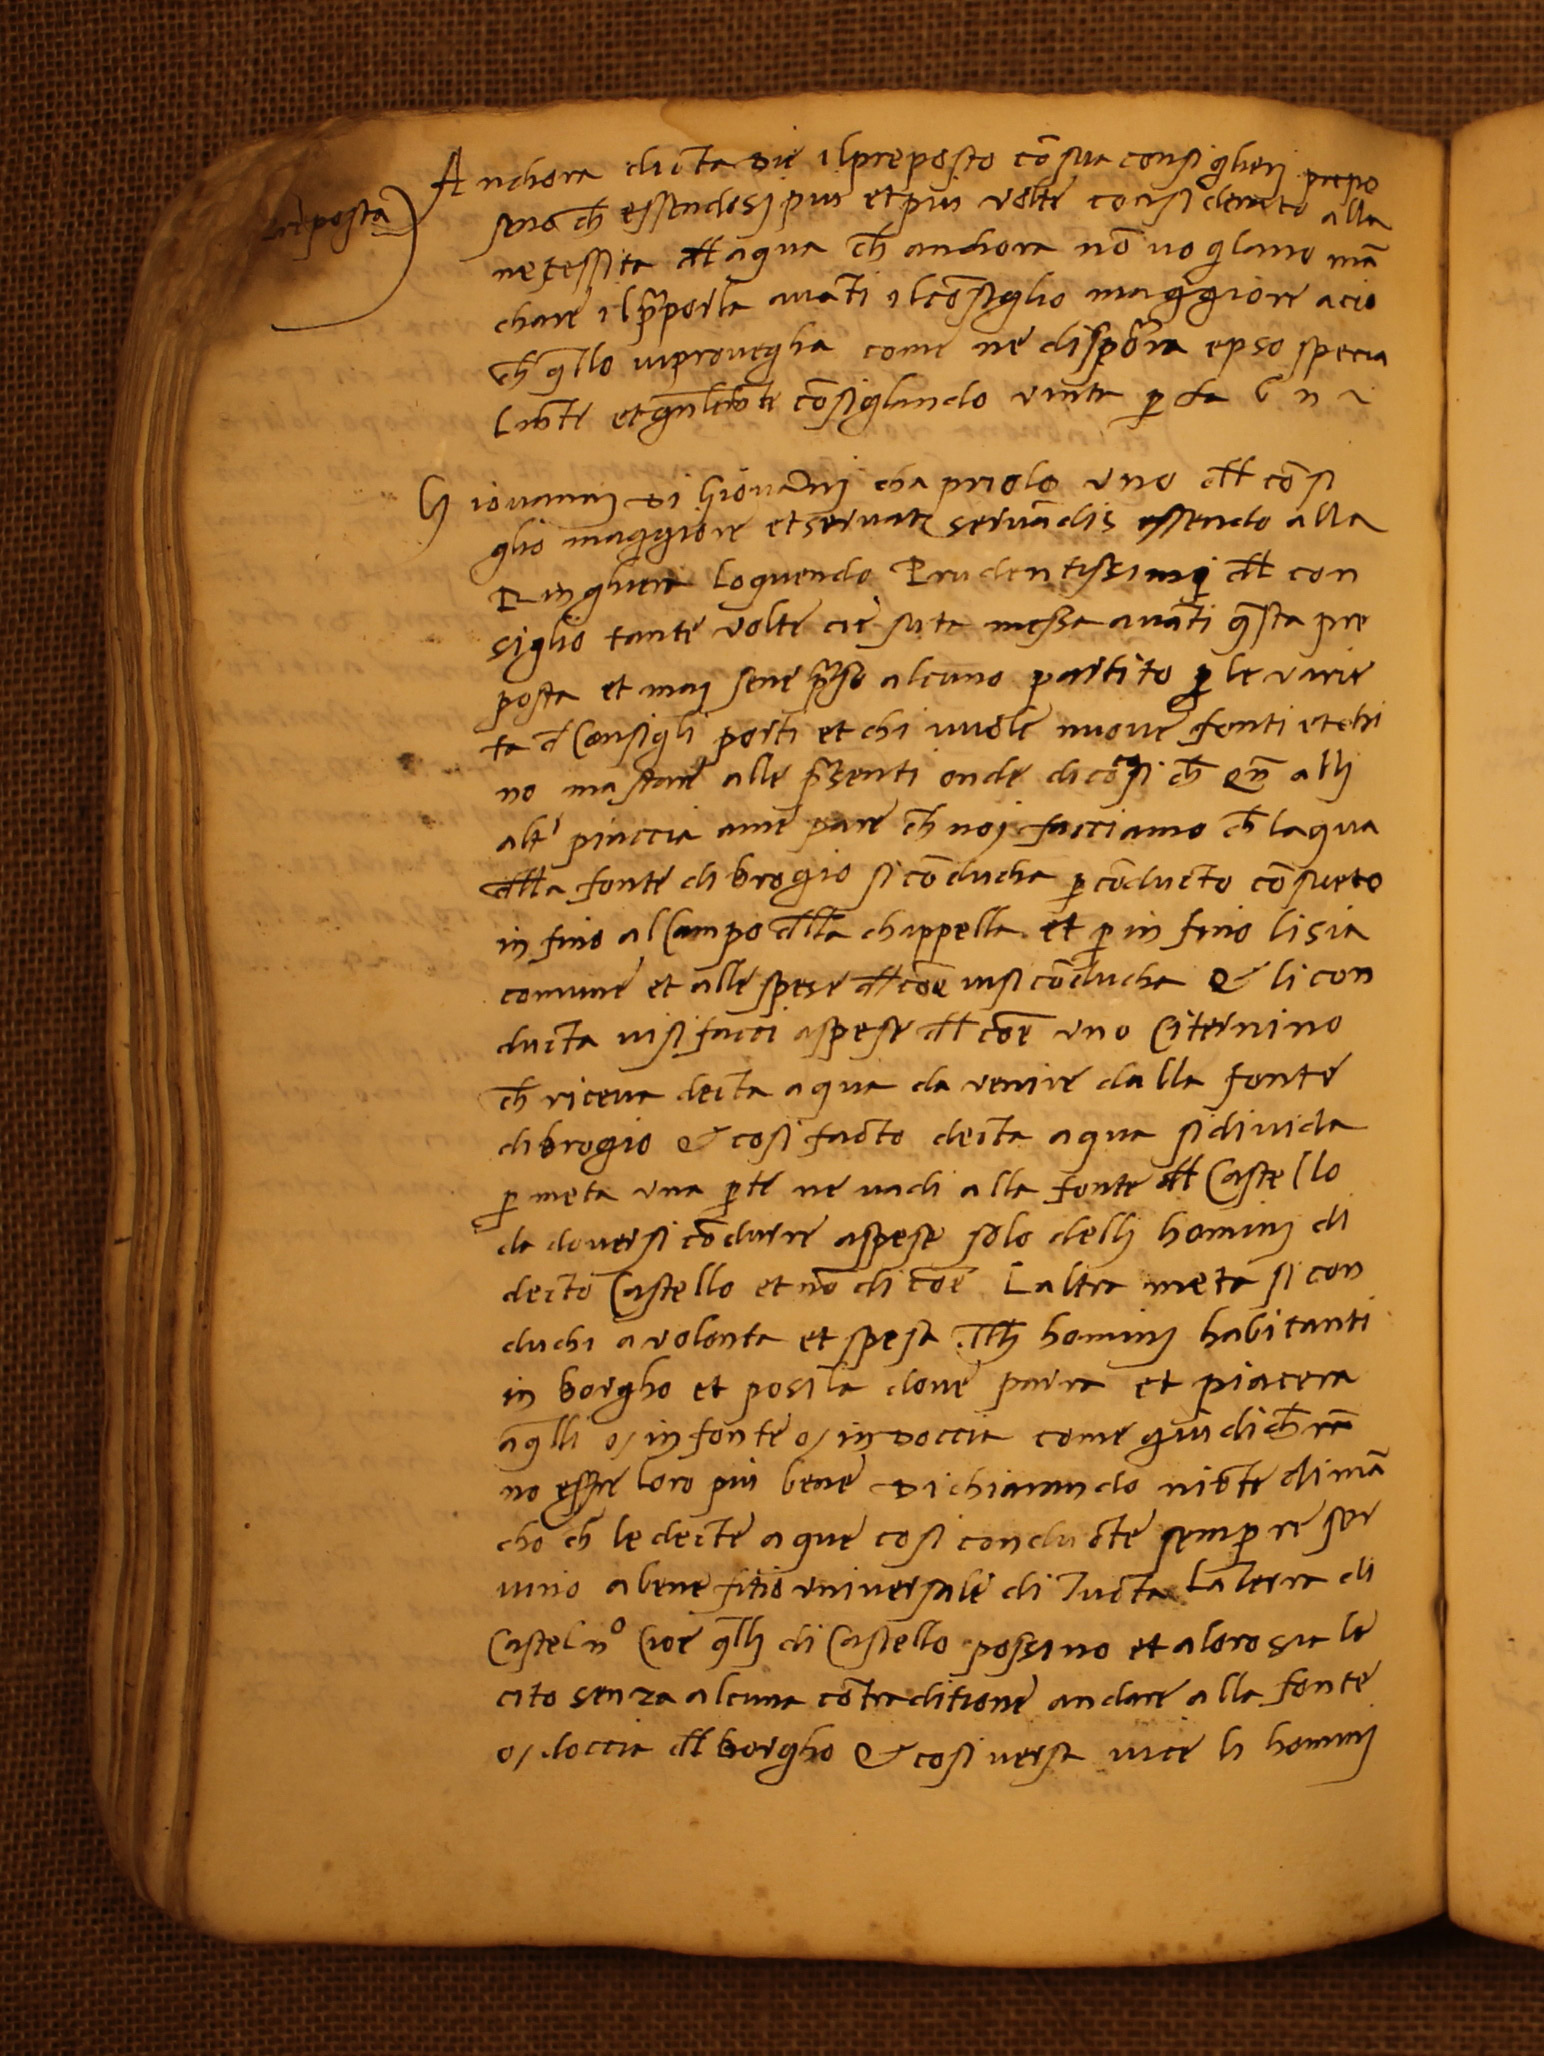 preposta
Anchora dicta die il preposto cō sua consiglieri prepo
seno ch̄ essendosi piu et piu volte considerato alla
necessita dll aqua ch̄ anchora nō voglano mā
chare il p̄porla auāti il cōsiglio maggiore acio
ch̄ q̄llo vi proueghia come ne dispōra epso specia
lmte et gn̄lmte cōsigliando vinta p̱
Giouannj di Giouānj chapriolo uno dll cōsi
glio maggiore et seruatj seruādis essendo alla
Ringhiera loquendo Prudentissimj dll con
siglio tante volte cie suta messa auāti q̄sta pre
posta et maj sene p̄so alcuno partito p̱ le varie
ta d Consigli porti et chi vuole nuoue fonti et chi
no ma stare alle p̄senti onde dico cosi ch̄ Qn̄ allj
altrj piaccia ame pare ch̄ noj facciamo ch̄ laqua
dlla fonte di brogio si cōducha p̱ cōducto cōsueto
in fino al Campo dlla chappella et p̱ in fino li sia
comune et alle spese dll cōe visi cōducha & li con
ducta visi facci aspese dll cōe vno Citernino
ch̄ riceua decta aqua da venire dalla fonte
di brogio & cosi facto decta aqua si diuida
p̱ meta vna p̱te ne uadi alla fonte dll Castello
da douersi cōdurre aspese solo dellj hominj di
decto Castello et nō di cōe Laltra meta si con
duchi a volonta et spesa dllj hominj habitanti
in borgho et posila doue parra et piacera
a q̄lli o/ in fonte o/ in doccia come giudich̄rā
no essre loro piu bene Dichiarando nibte di mā
cho ch̄ le decte aque cosi conducte sempre ser
uino a benefitio vniuersale di Tucta La Terra di
Casteln° Cioe q̄llj di Castello possino et a loro sia le
cito senza alcuna cōtraditione andare alla fonte
o/ doccia dll borgho & cosi versa vice li hominj